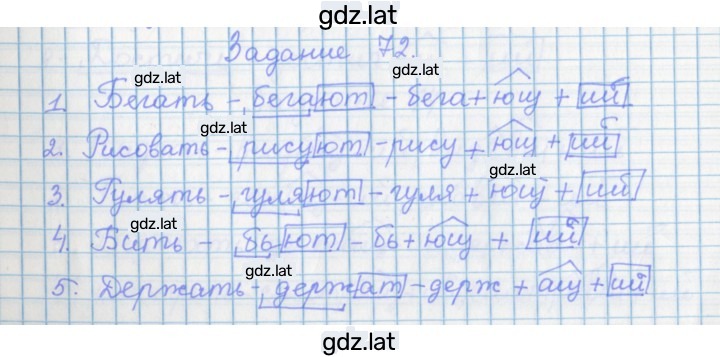 gdz.lat
Задание 72.
gdz.lat
gdz.lat
1. Бегать - бегают - бега + ющ + ий
gdz.lat
2. Рисовать - рисуют - рису + ющ + ий
gdz.lat
3. Гулять - гуляют - гуля + ющ + ий
gdz.lat
4. Бить - бьют - бь + ющ + ий
gdz.lat
5. Держать - держат - держ + ащ + ий
gdz.lat